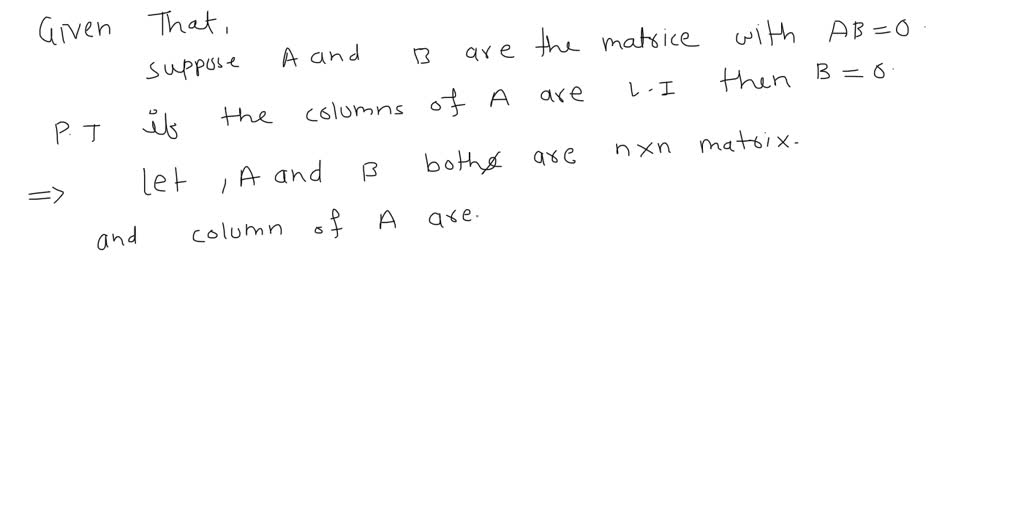 Given That,
suppose A and B are the matrice with AB=0.
P.T if the columns of A are L.I then B=0.
=> let, A and B both are n×n matrix.
and column of A are.